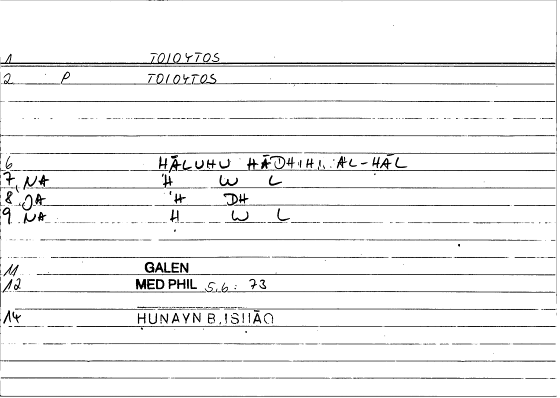 1 TOIOYTOS
2 P TOIOYTOS
6 HĀLUHU HĀDHIHI AL-HĀL
7, NA H W L
8. JA H DH
9. NA H W L
11 GALEN
12 MED PHIL 5,6: 73
14 HUNAYN B. ISHĀQ